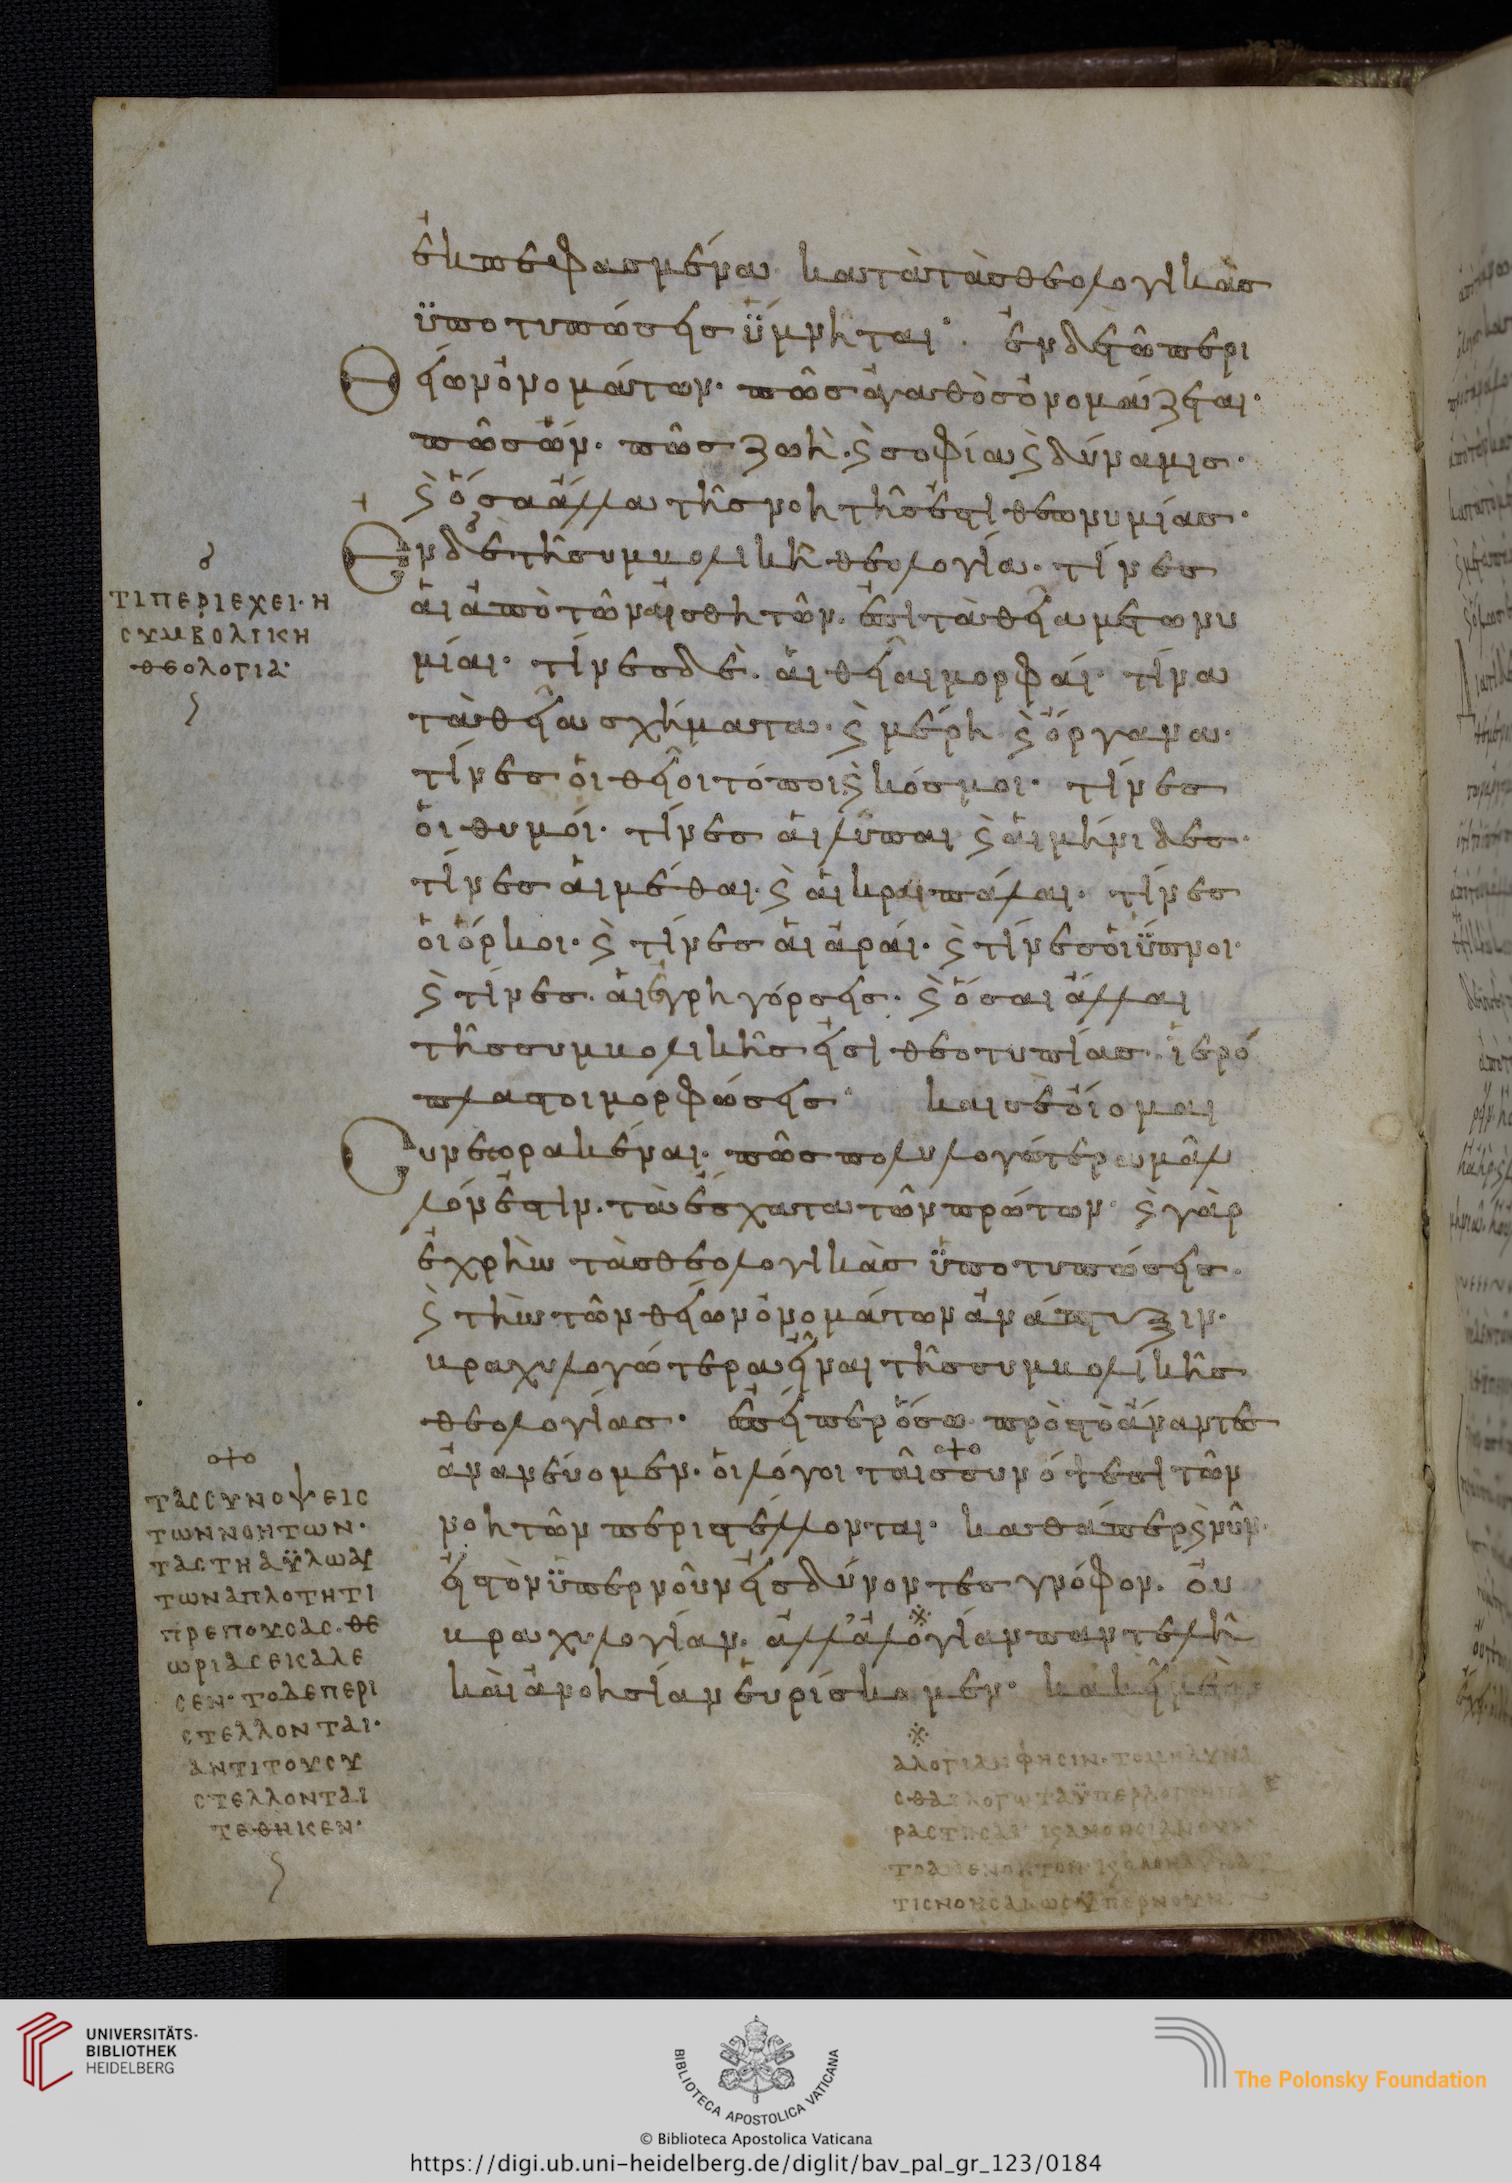 ἐκπεφασμένα κατὰ τὰς θεολογικὰς
ϋποτυπώσεις ΰμνηται· ἐν δὲ τῶ περι
Θείων ὀνομάτων· πῶς ἀγαθὸς ὀνομάζεται·
πῶς ὤν· πῶς ζωὴ· ϗ σοφία ϗ δύναμις·
ϗ ὅσα ἄλλα τῆς νοητῆς ἐστὶ θεωνυμίας·
Ἐν δὲ τῆ συμβολικῆ θεολογία· τίνες
ἁι ἀπὸ τῶν αἰσθητῶν· ἐπὶ τὰ θεῖα μετωνυ
μίαι· τίνες δὲ· ἁι θεῖαι μορφάι· τίνα
τὰ θεῖα σχήματα· ϗ μέρη ϗ ὄργανα·
τίνες ὁι θεῖοι τόποι ϗ κόσμοι· τίνες
ὁι θυμόι· τίνες ἁι λῦπαι ϗ ἁι μήνιδες·
τίνες ἁι μέθαι· ϗ ἁι κραιπάλαι· τίνες
ὁι ὅρκοι· ϗ τίνες ἁι ἀράι· ϗ τίνες ὁι ΰπνοι·
ϗ τίνες· ἁι ἐγρηγόρσεις· ϗ ὅσαι ἄλλαι
τῆς συμβολικῆς εἰσὶ θεοτυπίας· ἱερό
πλαστοι μορφώσεις· και σὲ ὀίομαι
Συνεωρακέναι· πῶς πολυλογώτερα μᾶλ
λόν ἐστιν· τὰ ἔσχατα τῶν πρώτων· ϗ γὰρ
ἐχρῆν τὰς θεολογικὰς ϋποτυπώσεις·
ϗ τὴν τῶν θείων ὀνομάτων ἀνάπτυξιν·
βραχυλογώτερα εἶναι τῆς συμβολικῆς
θεολογίας· ἐπείπερ ὅσω πρὸς τὸ ἄναντες
ἀνανεύομεν· ὁι λόγοι ταῖς συνόψεσι τῶν
νοητῶν περιστέλλονται· καθάπερ ϗ νῦν·
εἰς τὸν ϋπερ νοῦν εἰσδύνοντες γνόφον· ὀυ
βραχυλογίαν· ἀλλ' ἀλογίαν παντελῆ
κὰι ἀνοησίαν ἑυρίσκομεν· κακεῖ μὲν
ΤΙ ΠΕΡΙΕΧΕΙ· Η
ΣΥΜΒΟΛΙΚΗ
ΘΕΟΛΟΓΙΑ·
ΤΑΣ ΣΥΝΟΨΕΙΣ
ΤΩΝ ΝΟΗΤΩΝ·
ΤΑΣ ΤΗ ΑΫΛΩ ΑΥ
ΤΩΝ ΑΠΛΟΤΗΤΙ
ΠΡΕΠΟΥΣΑΣ· ΘΕ
ΩΡΙΑΣ ΕΚΑΛΕ
ΣΕΝ· ΤΟ ΔΕ ΠΕΡΙ
ΣΤΕΛΛΟΝΤΑΙ·
ΑΝΤΙ ΤΟΥ ΣΥ
ΣΤΕΛΛΟΝΤΑΙ
ΤΕΘΗΚΕΝ·
ΑΛΟΓΙΑΝ ΦΗΣΙΝ· ΤΟ ΜΗ ΔΥΝΑ
ΣΘΑΙ ΛΟΓΩ ΤΑ ΫΠΕΡ ΛΟΓΟΝ ΠΑ
ΡΑΣΤΗΣΑΙ· ϗ ΑΝΟΗΣΙΑΝ
ΤΙΣ ΝΟΗΣΑΙ ΩΣ ΫΠΕΡ ΝΟΥΝ
UNIVERSITÄTS-
BIBLIOTHEK
HEIDELBERG
BIBLIOTECA APOSTOLICA VATICANA
The Polonsky Foundation
© Biblioteca Apostolica Vaticana
https://digi.ub.uni-heidelberg.de/diglit/bav_pal_gr_123/0184